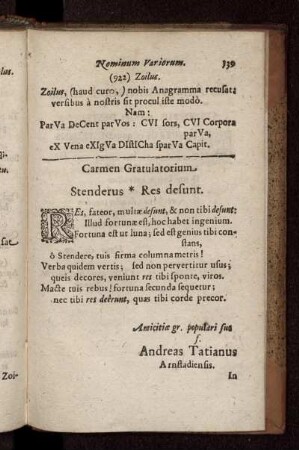 Nominum Variorum. 339
(922) Zoilus.
Zoilus, (haud curo,) nobis Anagramma recusat:
versibus à nostris sit procul iste modò.
Nam:
ParVa DeCent parVos: CVI sors, CVI Corpora
parVa,
eX Vena eXIgVa DIstICha sparVa Capit.
Carmen Gratulatorium
Stenderus * Res desunt.
REs, fateor, multæ desunt, & non tibi desunt;
Illud fortunæ est, hoc habet ingenium.
Fortuna est ut luna; sed est genius tibi con-
stans,
ô Stendere, tuis firma columna metris!
Verba quidem vertis; sed non pervertitur usus;
queis decores, veniunt res tibi sponte, viros.
Macte tuis rebus! fortuna secunda sequetur;
nec tibi res deerunt, quas tibi corde precor.
Amicitiæ gr. populari suo
f.
Andreas Tatianus
Arnstadiensis.
In